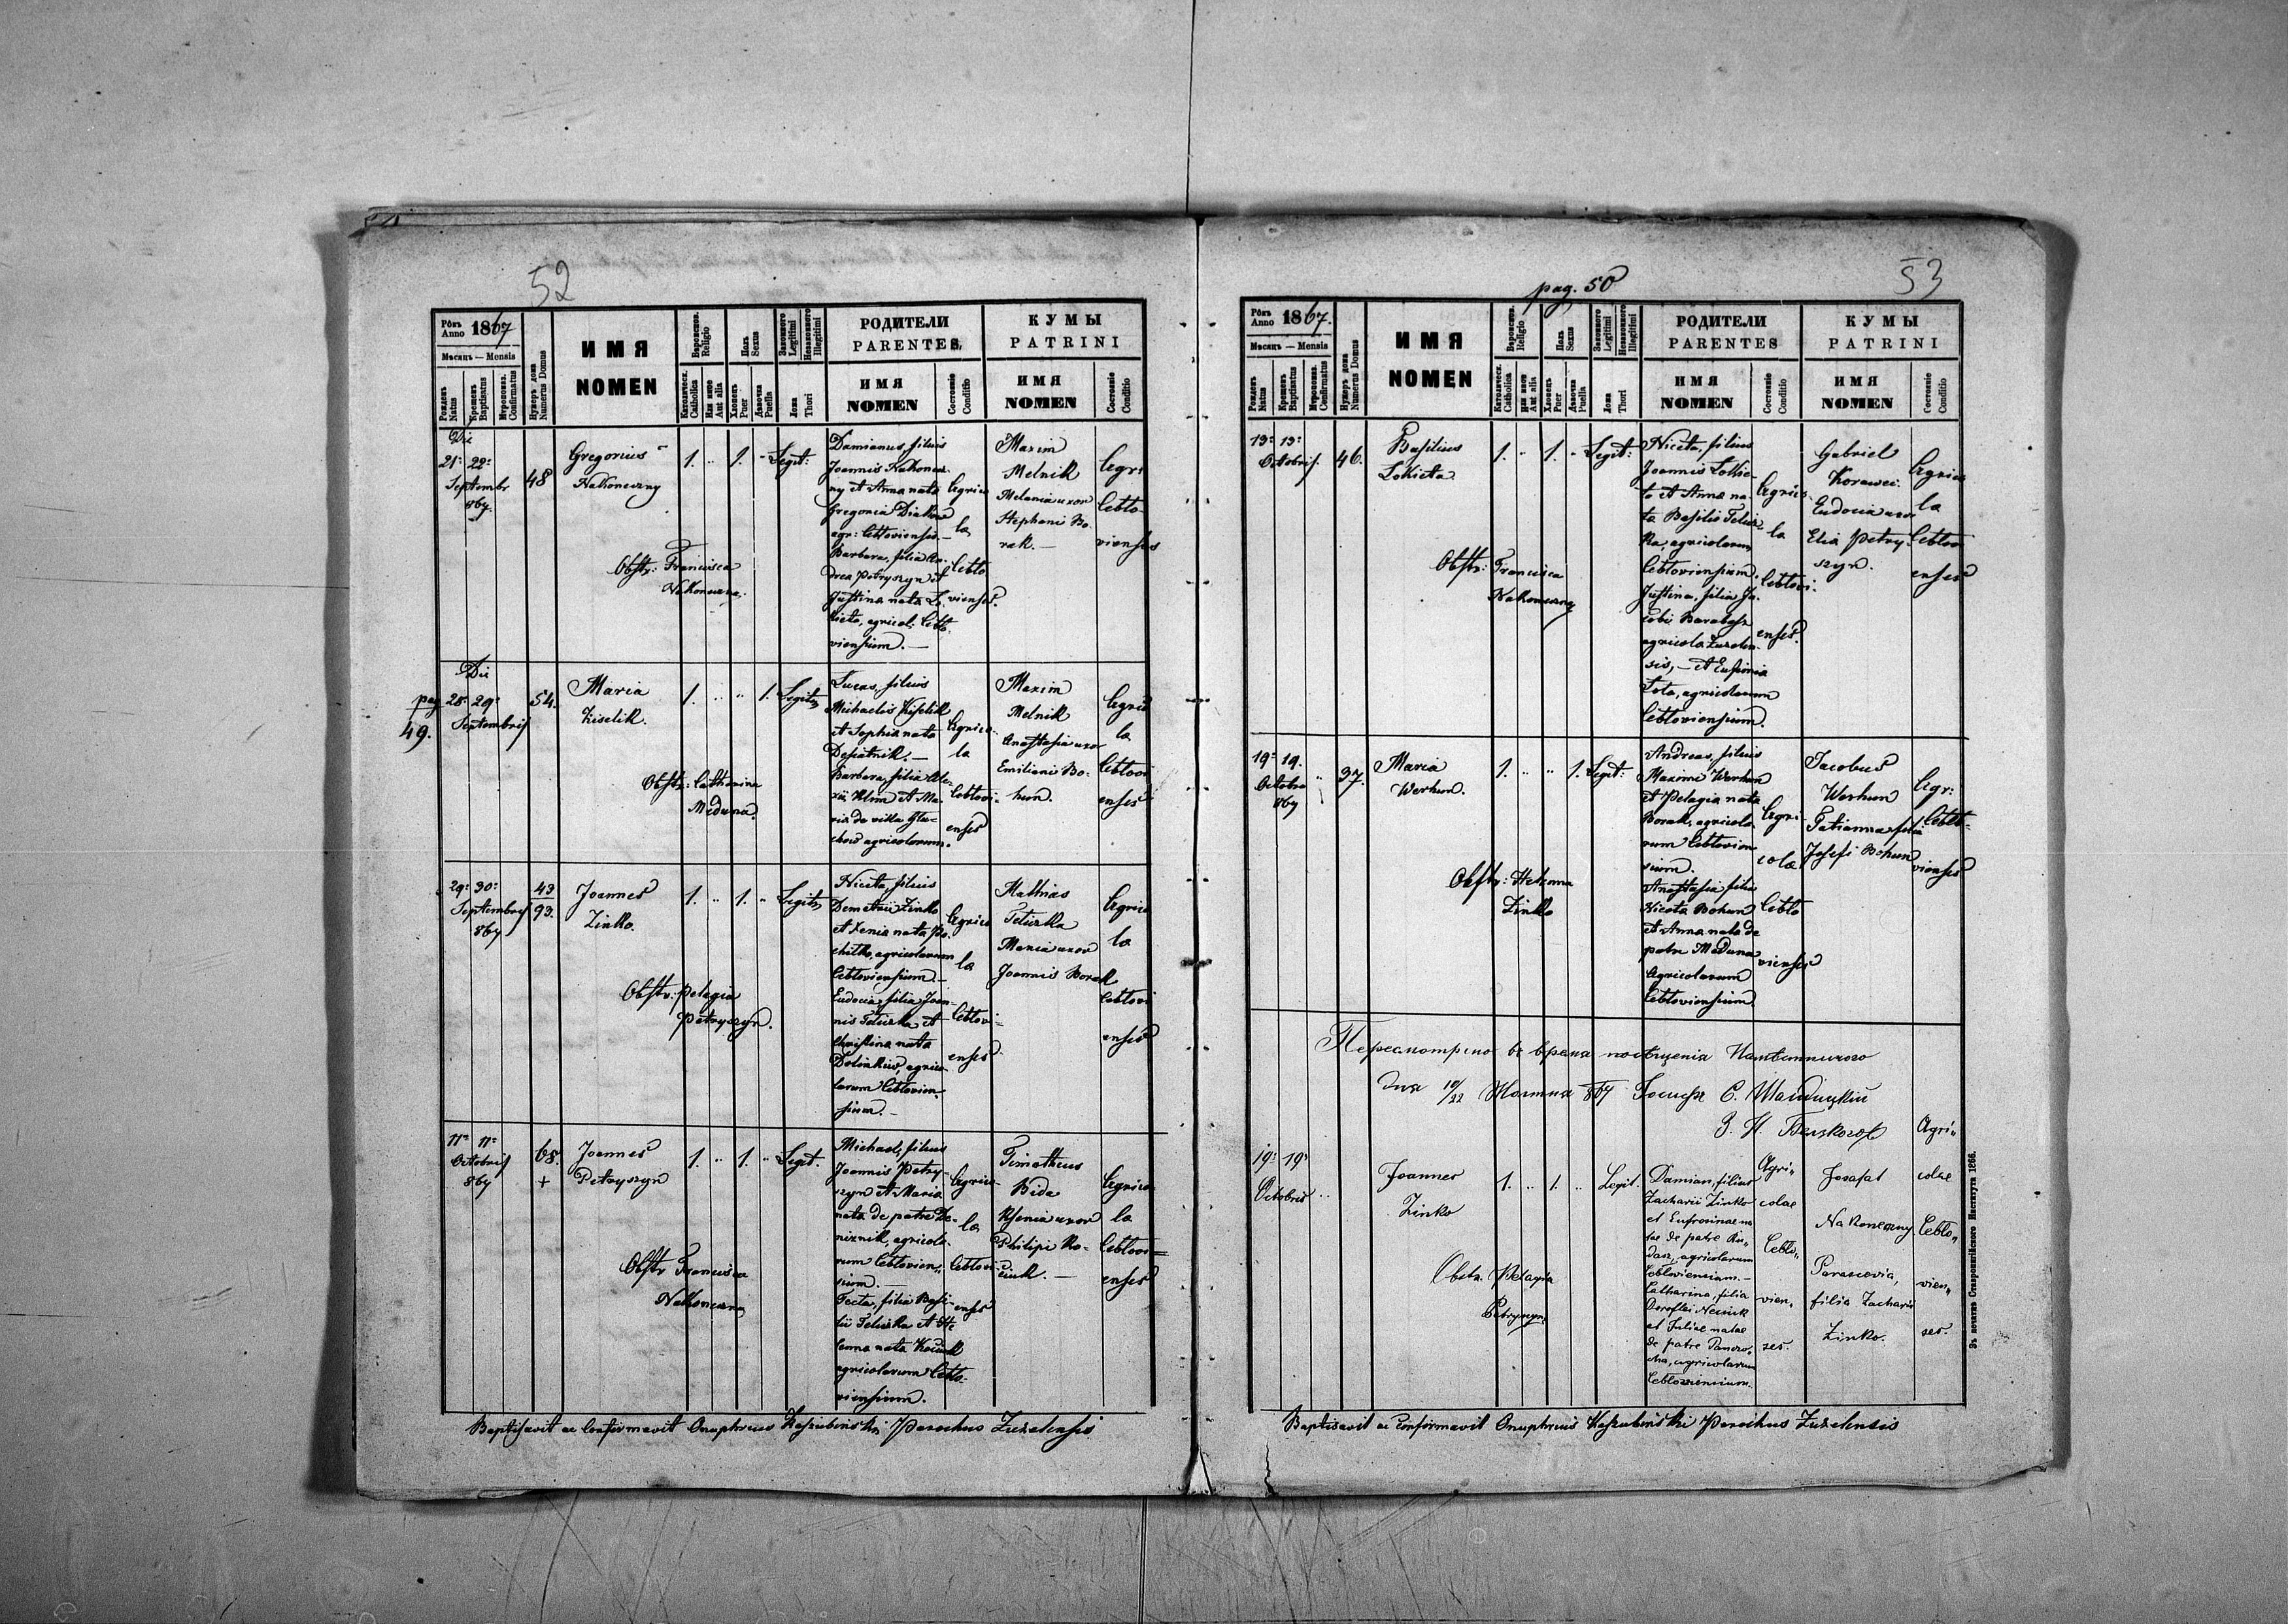 52
Рôкъ Anno 1867
Мѣсяцъ — Mensis
Рожденъ Natus
Крещенъ Baptisatus
Мѵропомаз. Confirmatus
Нумеръ дома Numerus Domus
ИМЯ NOMEN
Вѣроиспов. Religio
Католическ. Catholica
Или иное Aut alia
Полъ Sexus
Хлопецъ Puer
Дѣвочка Puella
Законного Legitimi
Незаконного Illegitimi
Ложа Thori
РОДИТЕЛИ PARENTES,
ИМЯ NOMEN
Состояніе Conditio
КУМЫ PATRINI
ИМЯ NOMEN
Состояніе Conditio
Die
21a 22a
Septembr
867.
48
Gregorius
Nakoneczny
Obstr: Francisca
Nakoneczna.
1. " 1. - Legit:
Damianus, filius
Joannis Nakonecz-
ny et Anna nata
Gregorii Diakow
agr: Cebloviensis. —
Barbara, filia An-
drea Petryszyn et
Justina nata Lo-
kieta, agricol: Ceblo-
viensium. —
Agrico
la
Ceblo
vienses.
Maxim
Melnik
Melania uxor
Stephani Bo-
rak. —
Agri
Ceblo-
vienses
pag.
49.
Die
28a 29a
Septembris
54.
Maria
Kiselik.
Obstr: Catharina
Meduna.
1. " " 1. Legitm
Lucas, filius
Michaelis Kiselik
et Sophia nata
Desiatnik. —
Barbara, filia Ale-
xii Klim et Ma-
ria de villa Glu-
chow agricolarum.
Agrico-
la
Ceblovi-
enses
Maxim
Melnik
Anastasia uxor
Emiliani Bo-
hun.
Agrico
la
Ceblovi
enses
29a 30a
Septembris
867
43
93.
Joannes
Zinko.
Obstr. Pelagia
Petryszyn.
1. " 1. " Legitm
Niceta, filius
Demetrii Zinko
et Xenia nata Po-
chitko, agricolarum
Cebloviensium —
Eudocia, filia Joan-
nis Teluzka et
Christina nata
agrico-
larum Ceblovien-
sium. —
Agrico
la
Ceblovi-
enses
Mathias
Teluzka
Maria uxor
Joannis Borak
Agrico
la
Ceblovi
enses
11a 11a
Octobris
867
68.
+
Joannes
Petryszyn
Obstr Francisca
Nakoneczna
1. " 1. " Legit.
Michael, filius
Joannis Petry-
szyn et Maria
nata de patre Ze-
niznik, agricola-
rum Ceblovien-
sium. —
Tecla, filia Basi-
lii Teluzka et He-
lenna nata Kociuk
agricolarum Ceblo-
viensium.
Agrico-
la
Ceblovi-
enses
Timotheus
Bida
Ksenia uxor
Philipi Ko-
ciuk. —
Agrico
la
Ceblovi=
enses
Baptisavit ac Confirmavit Onuphrius Kaszubiński Parochus Zuzelensis
pag. 50
53
Рôкъ Anno 1867.
Мѣсяцъ — Mensis
Рожденъ Natus
Крещенъ Baptisatus
Мѵропомаз. Confirmatus
Нумеръ дома Numerus Domus
ИМЯ NOMEN
Вѣроиспов. Religio
Католическ. Catholica
Или иное Aut alia
Полъ Sexus
Хлопецъ Puer
Дѣвочка Puella
Законного Legitimi
Незаконного Illegitimi
Ложа Thori
РОДИТЕЛИ PARENTES
ИМЯ NOMEN
Состояніе Conditio
КУМЫ PATRINI
ИМЯ NOMEN
Состояніе Conditio
13a 13a
Octobris.
46.
Basilius
Lokieta
Obstr: Francisca
Nakoneczny
1. " 1. - Legit:
Niceta, filius
Joannis Lokie-
ta et Anna na-
ta Basilii Teluz-
ka, agricolarum
Cebloviensium.
Justina, filia Ja-
cobi Barabasz
agricola Zuzelen-
sis, — et Eufimia
Lota, agricolarum
Cebloviensium.
Agrico-
la
Ceblovi-
enses.
Gabriel
Korawei.
Eudocia uxor
Elia Petry-
szyn.
Agrico
la
Ceblovi
enses
19a 19.
Octobris
867
"
37.
Maria
Werhun.
Obstr: Helenna
Zinko
1. " " 1. Legit:
Andreas, filius
Maximi Werhun
et Pelagia nata
Borak, agricola-
rum Ceblovien-
sium.
Anastasia filia
Niceta Bohun
et Anna nata de
patre Meduna
Agricolarum
Cebloviensium
Agri-
cola
Ceblo
vienses
Jacobus
Werhun
Tatianna filia
Josefi Bohun
Agr:
Ceblo-
vienses
Пересмотрено въ время посѣщенія Намѣстничого
дня 10/22 Жолтня 867 Іосифъ С.
19a 19a
Octobris "
Joannes
Zinko
Obstr. Pelagia
Petryszyn.
1. " 1. " Legit.
Damian, filius
Zacharii Zinko
et Eufrosinae na
tae de patre Ru„
dasz, agricolarum
Cebloviensium. —
Catharina, filia
Doroftei
et Juliae natae
de patre Panczo„
cha, agricolarum
Cebloviensium.
Agri„
colae
Ceblo„
vien„
ses.
Josafat
Nakoneczny.
Parascevia,
filia Zacharii
Zinko.
Agri„
colae
Ceblo„
vien„
ses.
Baptisavit ac Confirmavit Onuphrius Kaszubiński Parochus Zuzelensis
Зъ печатнѣ Ставропигійского Института 1866.